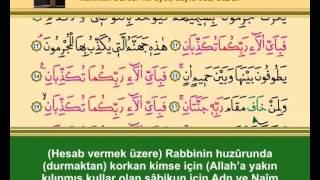 فَبِأَيِّ اٰلَاءِ رَبِّكُمَا تُكَذِّبَانِ ﴿٤٢﴾ هٰذِهِ جَهَنَّمُ الَّتِي يُكَذِّبُ بِهَا الْمُجْرِمُونَ ﴿٤٣﴾
يَطُوفُونَ بَيْنَهَا وَبَيْنَ حَمِيمٍ اٰنٍ ﴿٤٤﴾ فَبِأَيِّ اٰلَاءِ رَبِّكُمَا تُكَذِّبَانِ ﴿٤٥﴾
وَلِمَنْ خَافَ مَقَامَ رَبِّهِ جَنَّتَانِ ﴿٤٦﴾ فَبِأَيِّ اٰلَاءِ رَبِّكُمَا تُكَذِّبَانِ ﴿٤٧﴾
(Hesab vermek üzere) Rabbinin huzûrunda
(durmaktan) korkan kimse için (Allah'a yakın
kılınmış kullar olan sâbikun için Adn ve Naîm